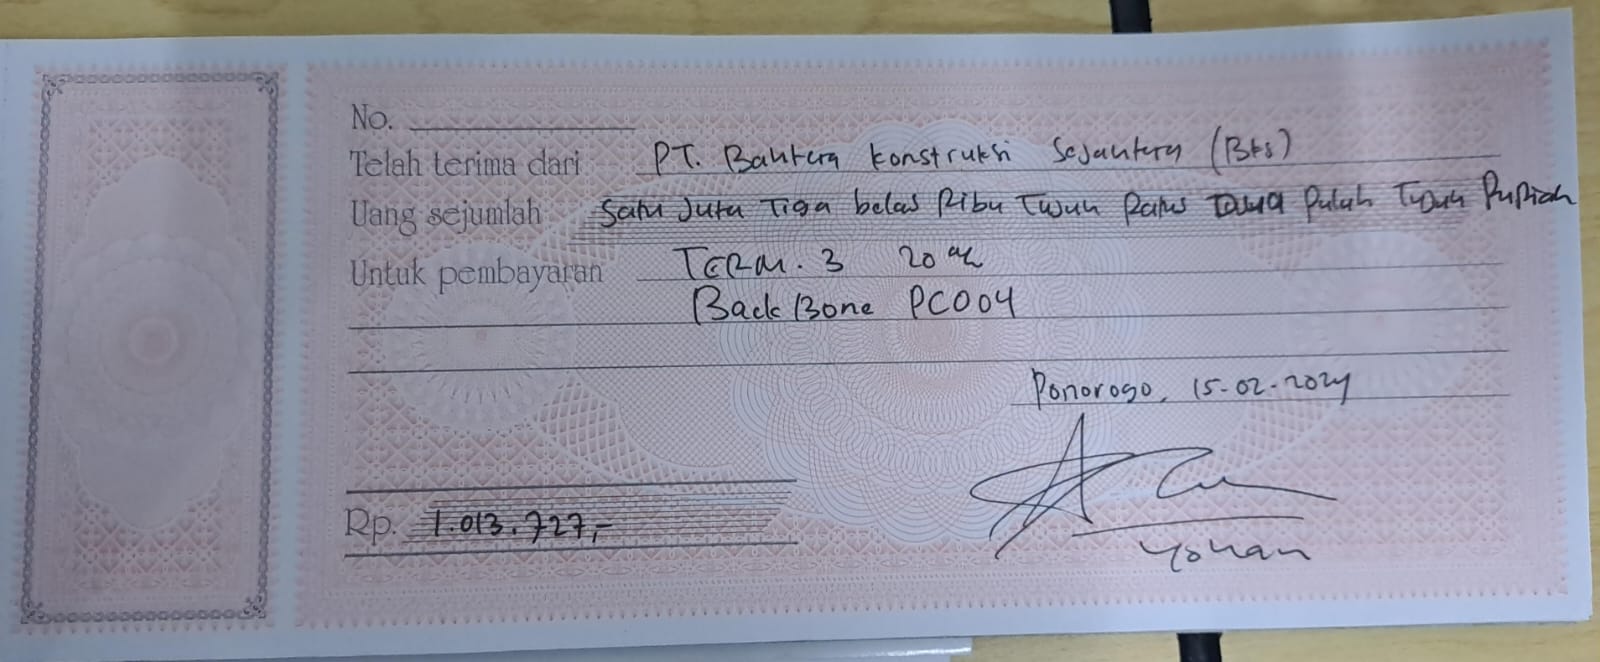 No.
Telah terima dari PT. Bahtera Konstruksi Sejahtera (Bks)
Uang sejumlah Satu Juta Tiga belas Ribu Tujuh Ratus Dua Puluh Tujuh Rupiah
Untuk pembayaran TERM. 3 20
Back Bone PC004
Ponorogo, 15-02-2024
Rp. 1.013.727,-
Yohan